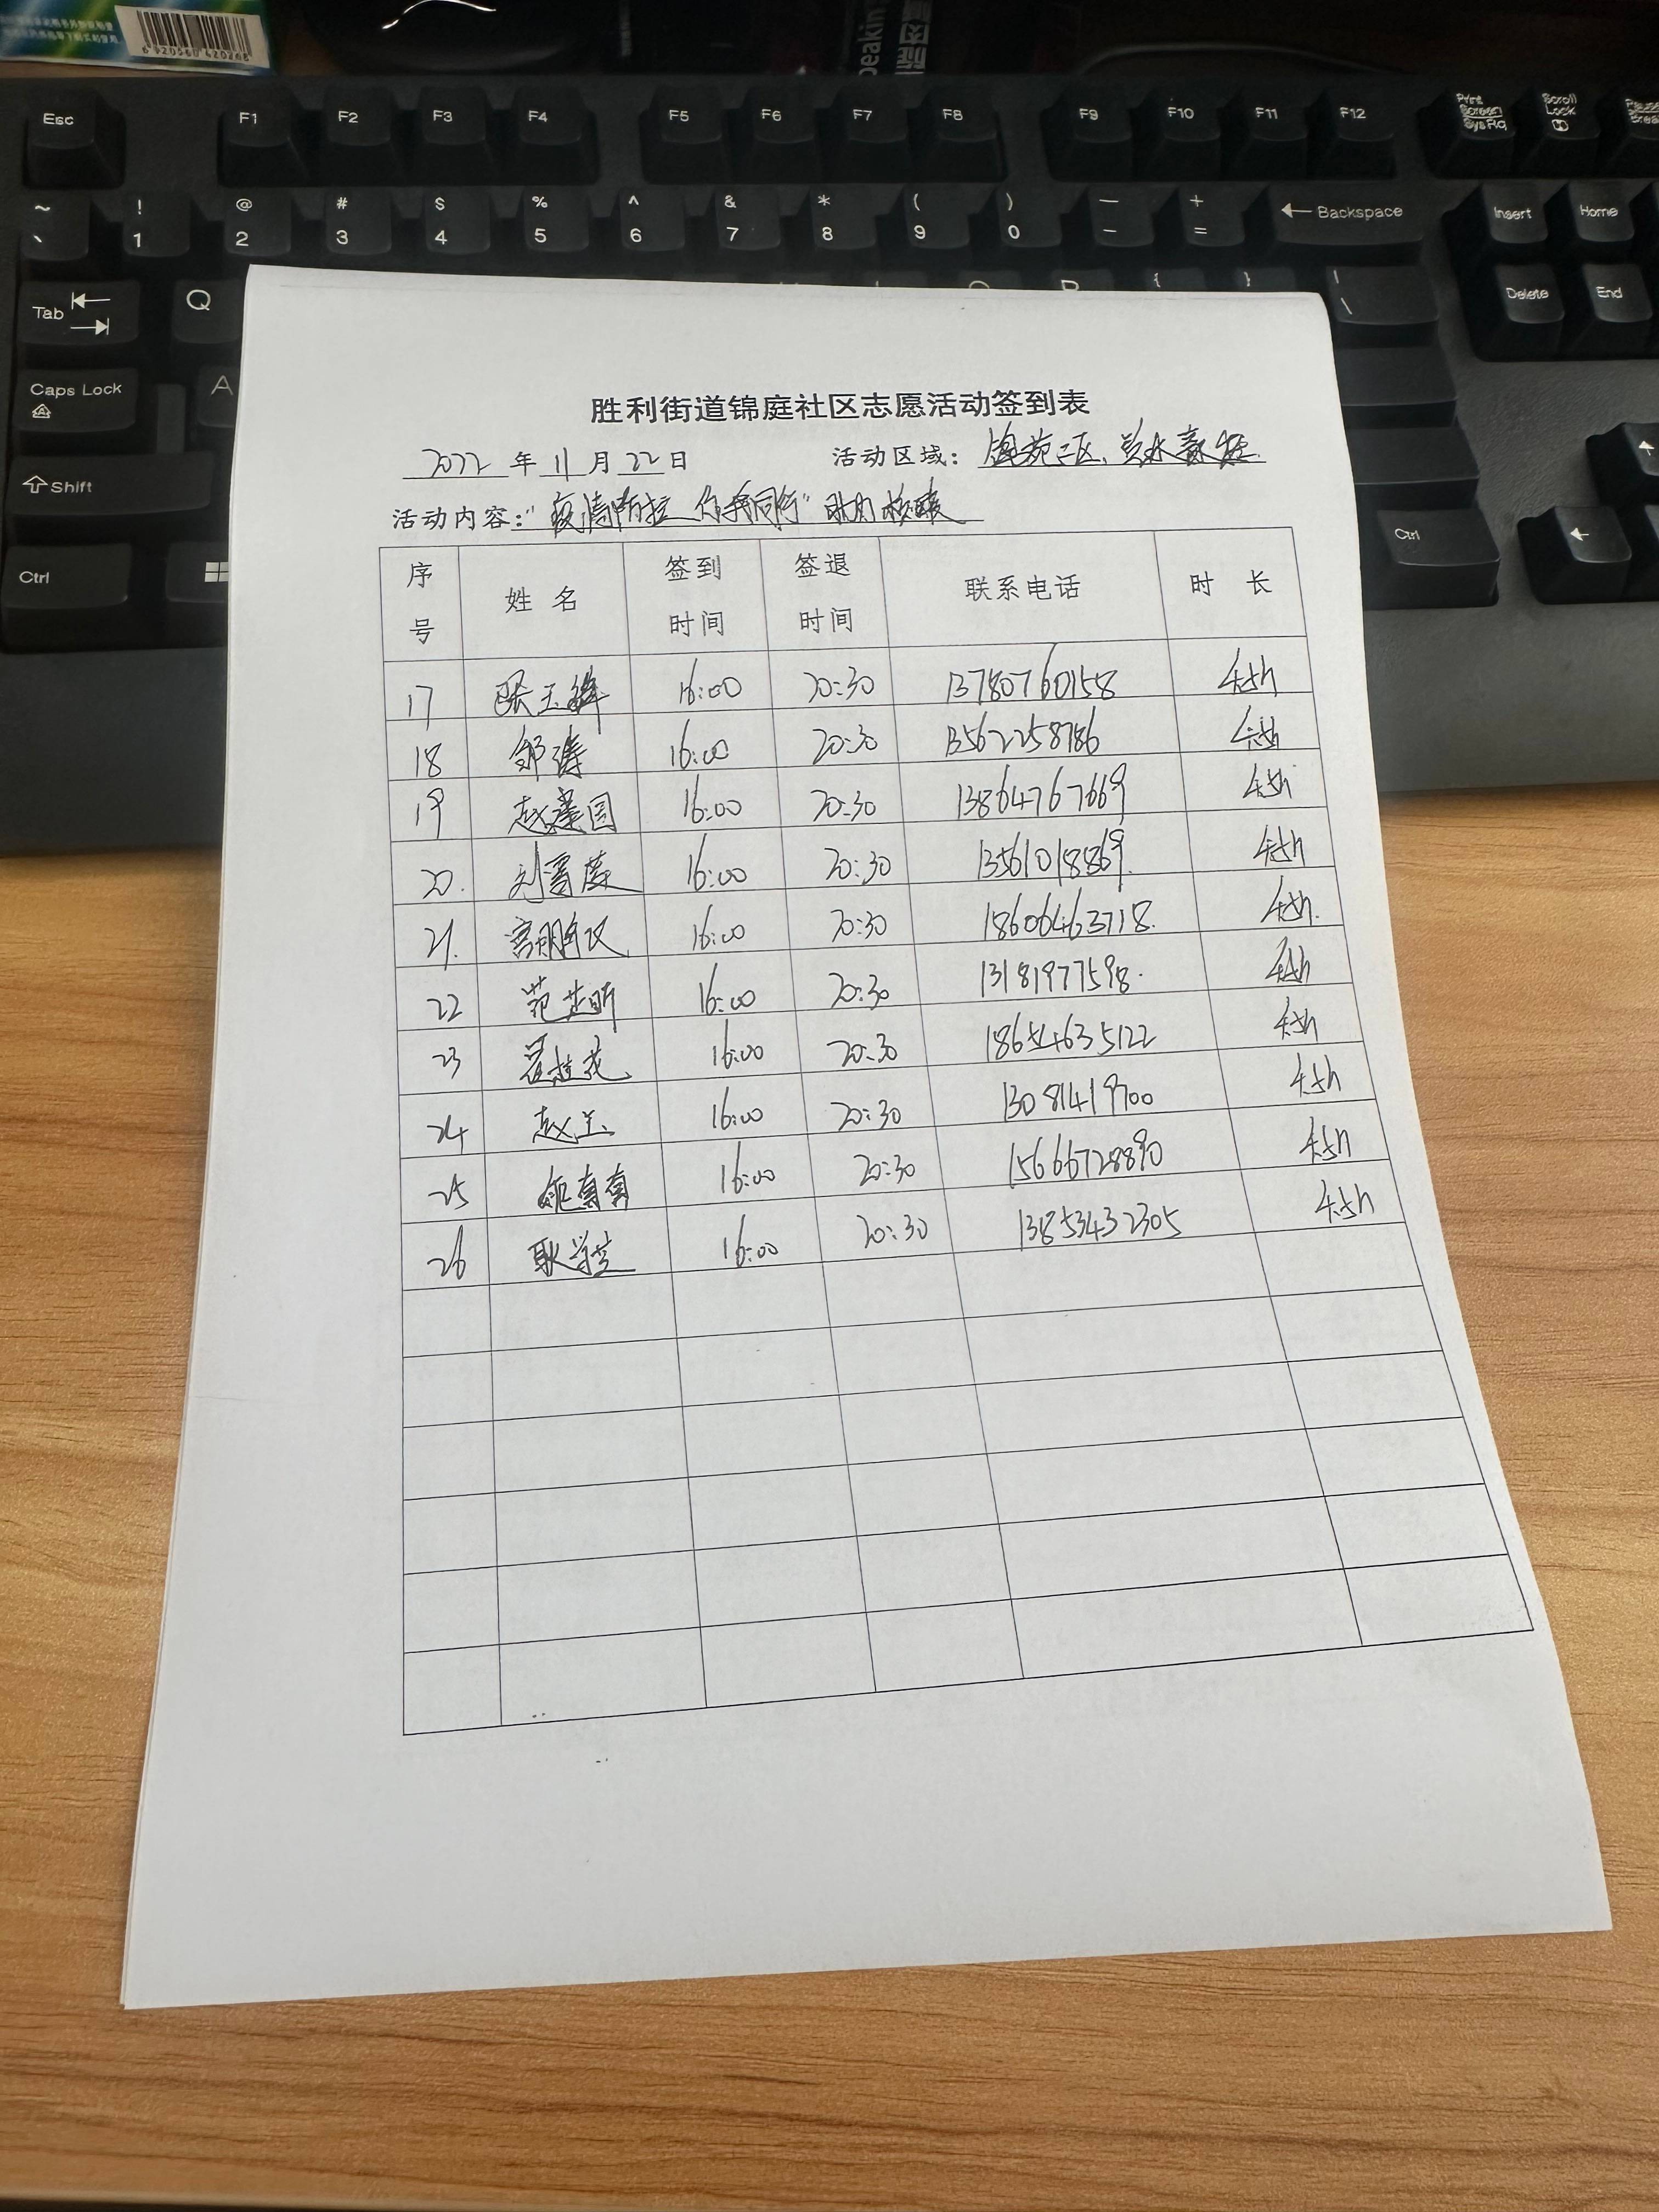 6 920567 420268
Esc F1 F2 F3 F4 F5 F6 F7 F8 F9 F10 F11 F12 Print Screen SysRq Scroll Lock
~ ` ! 1 @ 2 # 3 $ 4 % 5 ^ 6 & 7 * 8 ( 9 ) 0 — - + = Backspace Insert Home
Tab Q Delete End
Caps Lock A
Shift
Ctrl Ctrl
胜利街道锦庭社区志愿活动签到表
2022 年 11 月 22 日 活动区域:
活动内容:"疫情防控 你我同行" 助力核酸
序号 姓名 签到时间 签退时间 联系电话 时长
17 16:00 20:30 13780760158 4.5h
18 邹涛 16:00 20:30 13562258786 4.5h
19 赵建国 16:00 20:30 13864767669 4.5h
20. 16:00 20:30 13561018869. 4.5h
21. 16:00 20:30 18606463718. 4.5h.
22 范芝昕 16:00 20:30 13181977598. 4.5h
23 翟桂花 16:00 20:30 18654635122 4.5h
24 赵玉 16:00 20:30 13081419700 4.5h
25 16:00 20:30 15666728890 4.5h
26 耿学芝 16:00 20:30 13853432305 4.5h